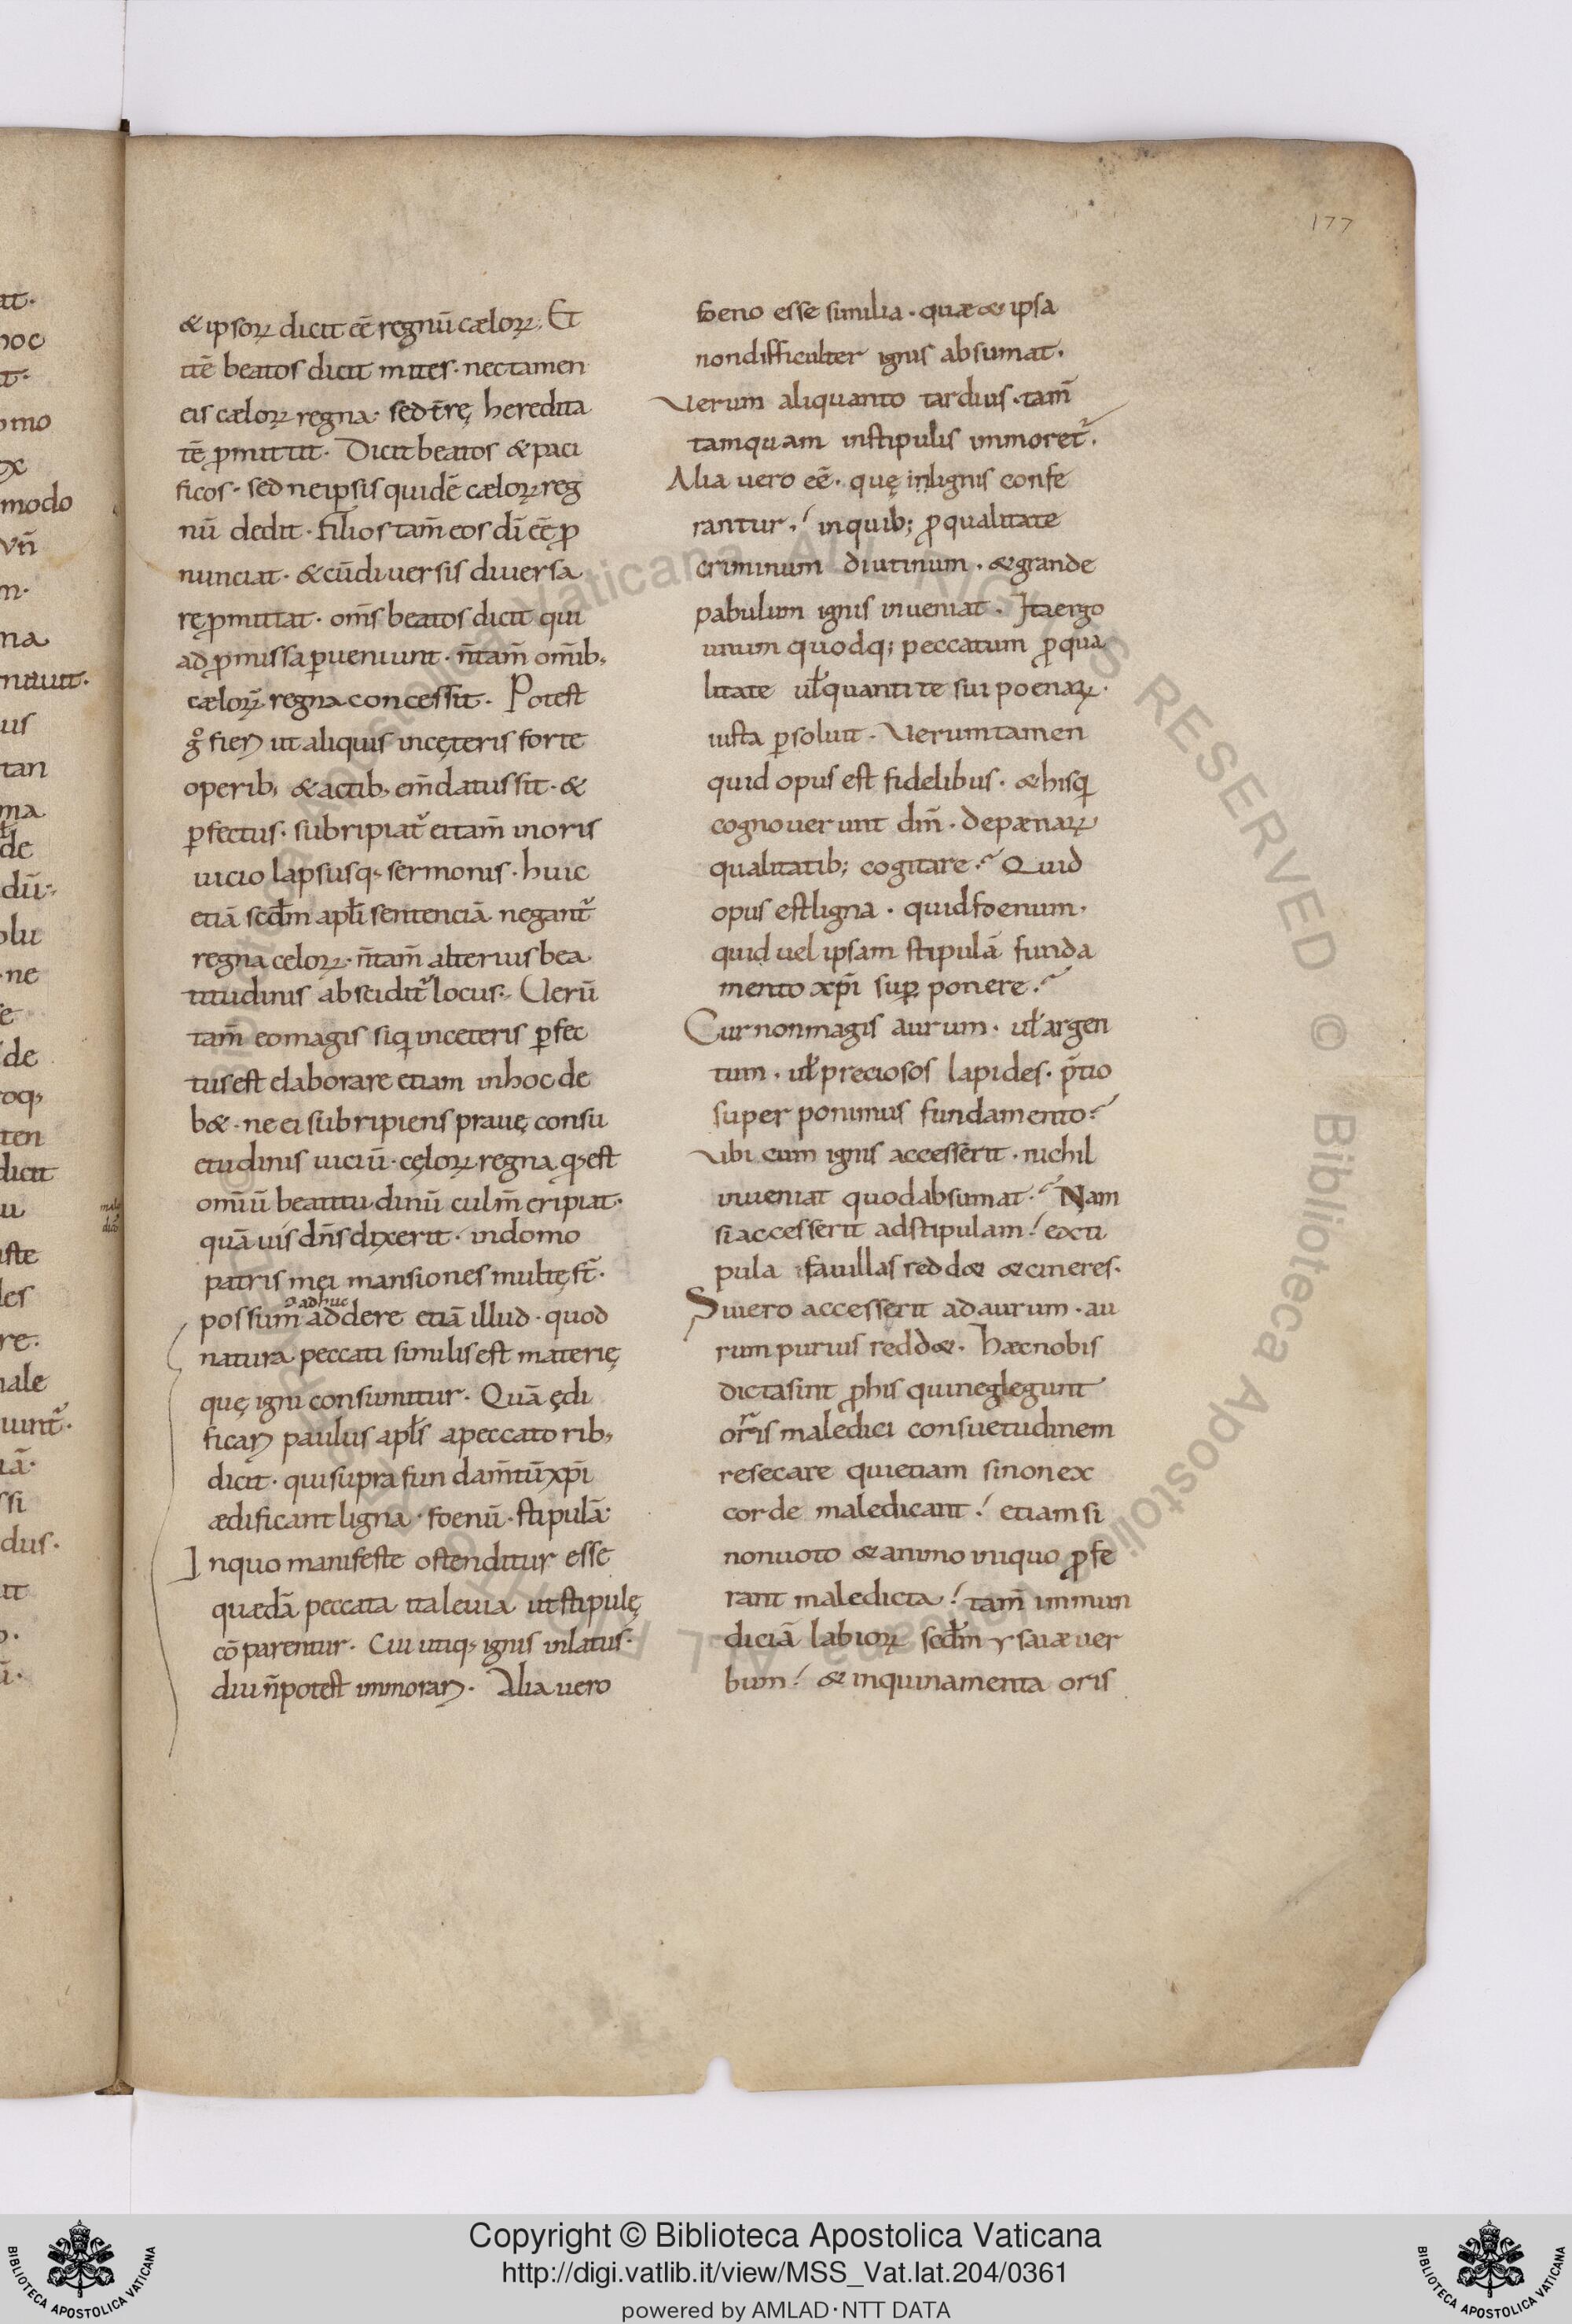 177
& ipsoꝝ dicit eē regnū cæloꝝ. Et
itē beatos dicit mites · nec tamen
eis cæloꝝ regna · sed t̄rę heredita
tē ꝓmittit · Dicit beatos & paci
ficos · sed ne ipsis quidē cæloꝝ reg
nū dedit · filios tam̄ eos dī eē ꝓ
nunciat · & cū diuersis diuersa
reꝓmittat · om̄s beatos dicit qui
ad ꝓmissa ꝑueniunt · n̄ tam̄ om̄ib;
cæloꝝ regna concessit · Potest
g̊ fieri ut aliquis in cęteris forte
operib; & actib; em̄datus sit · &
ꝑfectus · subripiat᷑ ei tam̄ in oris
uicio lapsusq; sermonis · huic
etiā scd̄m apl̄i sentenciā negant᷑
regna celoꝝ · n̄ tam̄ alterius bea
titudinis abscidit᷑ locus · Uerū
tam̄ eo magis siq̇ in ceteris ꝑfec
tus est elaborare etiam in hoc de
b& · ne ei subripiens prauę consu
etudinis uiciū · cęloꝝ regna q; est
omiū beatitudinū culm̄ eripiat ·
quāuis dn̄s dixerit · in domo
patris mei mansiones multę st̄ ·
adhuc
possum̄ addere etiā illud · quod
natura peccati similis est materię
quę igni consumitur · Quā ędi
ficari paulus apl̄s a peccatorib;
dicit · qui supra fundam̄tū xp̄i
ædificant ligna · foenū · stipulā ·
In quo manifeste ostenditur esse
quædā peccata ita leuia ut stipulę
cōparentur · Cui utiq; ignis inlatus ·
diu n̄ potest immorari · Alia uero
foeno esse similia · quæ & ipsa
non difficulter ignis absumat ·
Uerum aliquanto tardius · tam̄
tamquam in stipulis immoret᷑ ·
Alia uero eē · quę in lignis confe
rantur · in quib; ꝓ qualitate
criminum diutinum · & grande
pabulum ignis inueniat · Ita ergo
unum quodq; peccatum ꝓ qua
litate ul̄ quantite sui poenaꝝ ·
iusta ꝑsoluit · Uerumtamen
quid opus est fidelibus · & his q̇
cognouerunt dm̄ · de pænaꝝ
qualitatib; cogitare · Quid
opus est ligna · quid foenum ·
quid uel ipsam stipulā funda
mento xp̄i suꝑ ponere ·
Cur non magis aurum · ul̄ argen
tum · ul̄ preciosos lapides · p̄tio
super ponimus fundamento ·
Ubi cum ignis accesserit · nichil
inueniat quod absumat · Nam
si accesserit ad stipulam · ex ti
pula fauillas redd& & cineres ·
Si uero accesserit ad aurum · au
rum purius redd& · Hæc nobis
dicta sint ꝓ his qui neglegunt
oris maledici consuetudinem
resecare qui etiam si non ex
corde maledicant · etiam si
non uoto & animo iniquo ꝓfe
rant maledicta · tam̄ immun
diciā labioꝝ scd̄m ysaiæ uer
bum · & inquinamenta oris
Copyright © Biblioteca Apostolica Vaticana
http://digi.vatlib.it/view/MSS_Vat.lat.204/0361
powered by AMLAD·NTT DATA
BIBLIOTECA APOSTOLICA VATICANA
BIBLIOTECA APOSTOLICA VATICANA